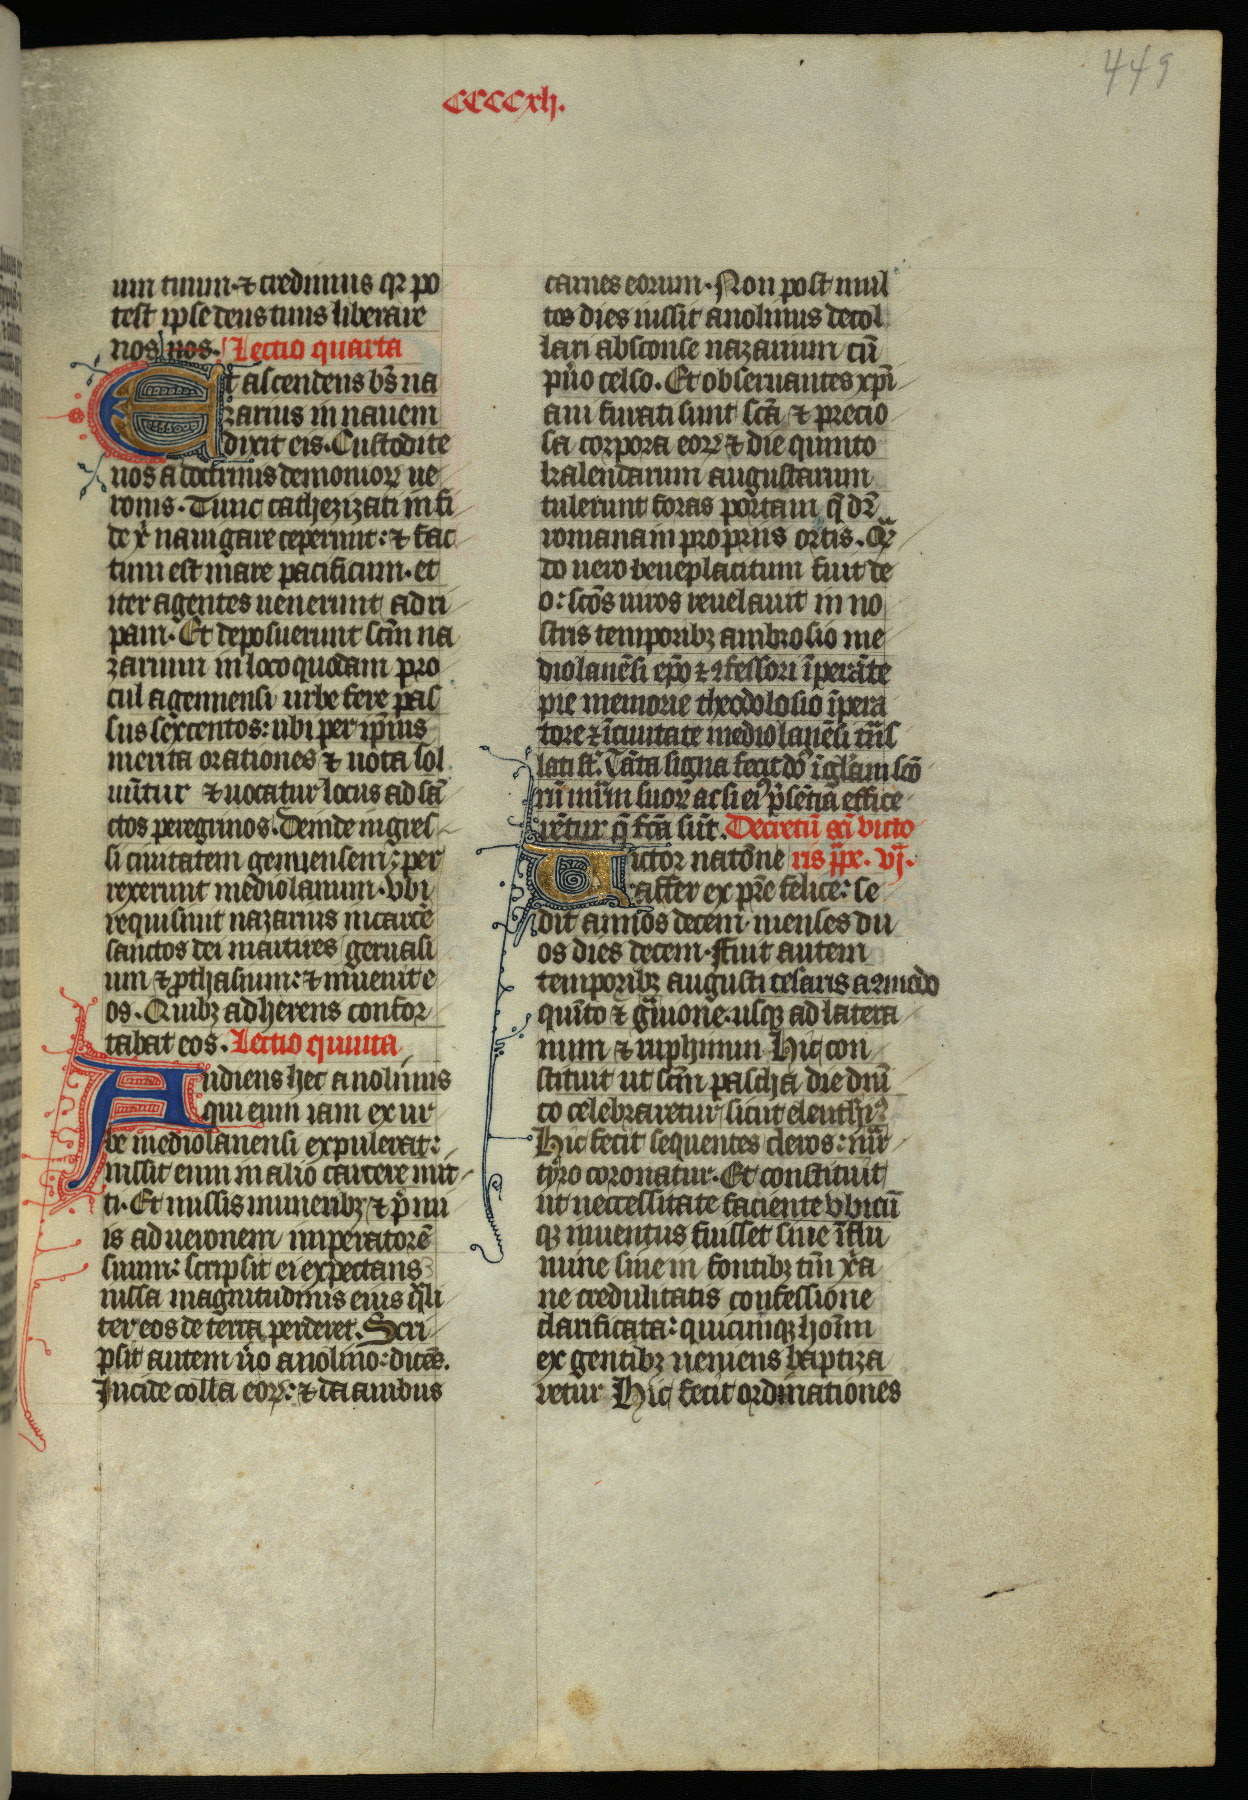 449
CCCCxli.
um tuum · ⁊ credimus qr po
test ipse deus tuus liberare
nos nos. Lectio quarta
Et ascendens bs̄ na
zarius in nauem
dixit eis. Custodite
uos a doctrinis demonior ue
ronis. Tunc cathezizati in fi
de xp̄i nauigare ceperunt: ⁊ fac
tum est mare pacificum. et
iter agentes uenerunt ad ri
pam. Et deposuerunt scm̄ na
zarium in loco quodam pro
cul a gennensi urbe fere pas
sus sexcentos: ubi per ip̄ius
merita orationes ⁊ uota sol
uūtur ⁊ uocatur locus ad sā
ctos peregrinos. Deinde ingres
si ciuitatem genuensem: per
rexerunt mediolanum. vbi
requisiuit nazarius in carcē
sanctos dei martires geruasi
um ⁊ ꝓthasium: ⁊ inuenit e
os. Quibꝫ adherens confor
tabat eos. Lectio quinta
Audiens hec anolinus
qui eum iam ex ur
be mediolanensi expulerat:
iussit eum in alio carcere mit
ti. Et missis muneribꝫ ⁊ p̄ nu
is ad neronem imperatorē
suum: scripsit ei expectans
iussa magnitudinis eius qͣli
ter eos de terra perderet. Scri
psit autem ūo anolino: dicēs.
Incide colla eoꝝ: ⁊ da auibus
carnes eorum. Non post mul
tos dies iussit anolinus decol
lari absconse nazarium cū
pūo celso. Et obseruantes xp̄i
ani furati sunt scā ⁊ precio
sa corpora eoꝝ ⁊ die quinto
kalendarum augustarum
tulerunt foras portam q̄ dr̄
romana in propriis ortis. Qn̄
do uero beneplacitum fuit de
o: scōs uiros reuelauit in no
stris temporibꝫ ambrosio me
diolanēsi ep̄o ⁊ ꝯfessori īperāte
pie memorie theodolosio īpera
tore ⁊ ī ciuitate mediolanēsi trās
lati st̄. Tāta signa fecit do ī glām scō
rū mrm̄ suoꝝ ac si eiꝰ p̄sētia effice
rētur q̄ fcā sūt. Decretū sci victo
ris pp̄e. vj.
Victor natōne
affer ex pr̄e felice: se
dit annos decem menses du
os dies decem. Fuit autem
temporibꝫ augusti cesaris a ꝯmodo
quīto ⁊ grauione. usqꝫ ad latera
num ⁊ ruphinum Hic con
stituit ut scm̄ pascha die dn̄i
co celebraretur sicut eleuthiꝰ
Hic fecit sequentes cleros: mar
tyro coronatur. Et constituit
ut neccessitate faciente vbicū
qꝫ inuentus fuisset siue ī flu
mine siue in fontibꝫ tm̄ xp̄ia
ne credulitatis confessione
clarificata: quicūqꝫ hoīm
ex gentibꝫ ueniens baptiza
retur Hic fecit ordinationes